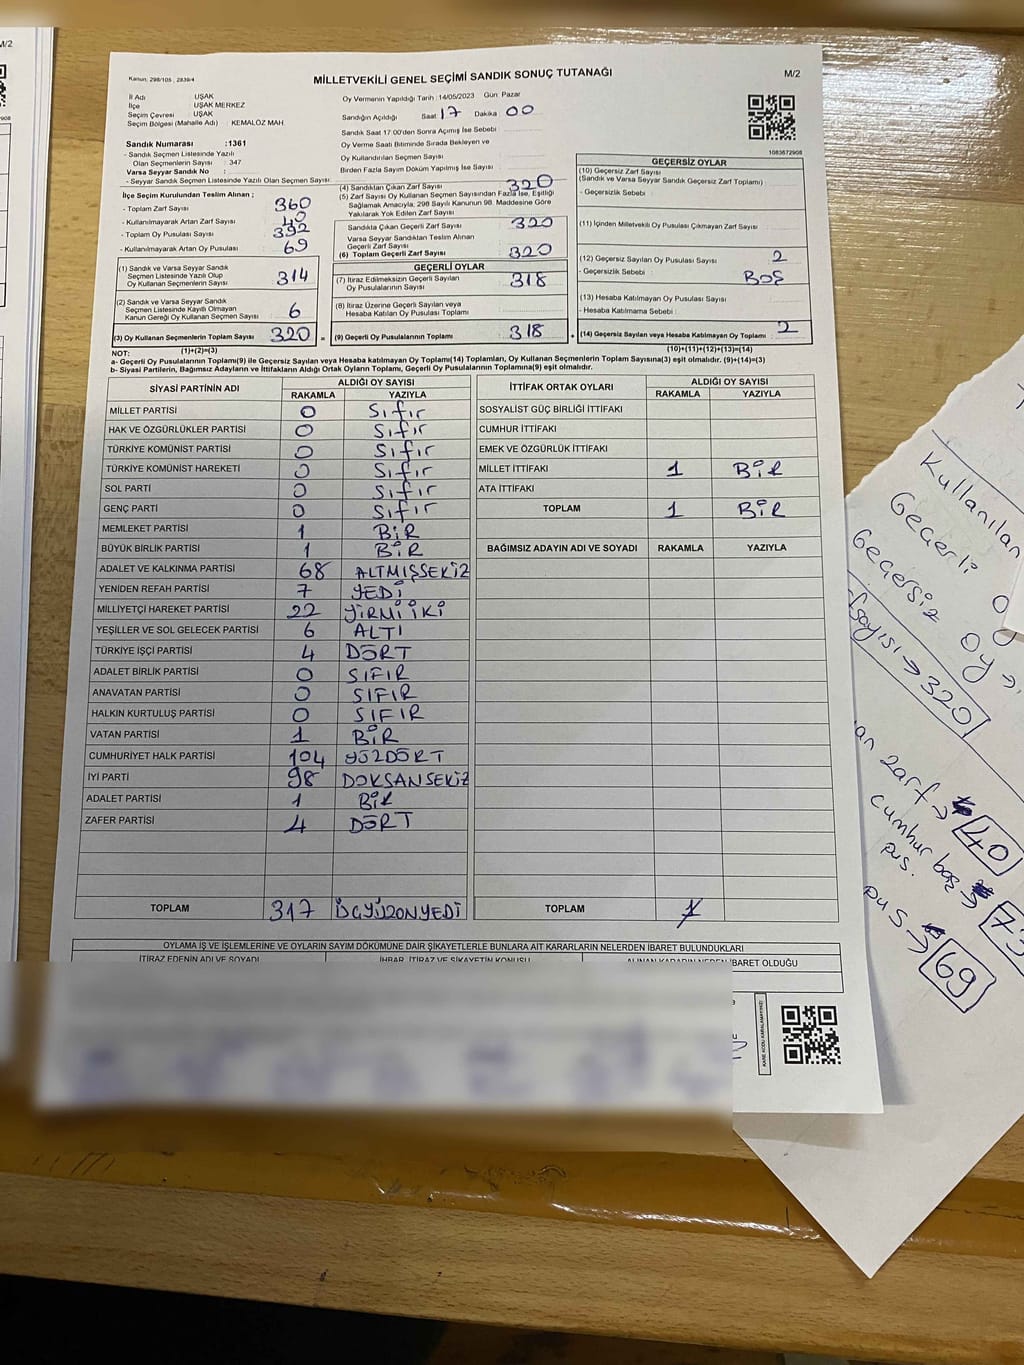 M/2
908
Kanun, 298/105 , 2839/4
MİLLETVEKİLİ GENEL SEÇİMİ SANDIK SONUÇ TUTANAĞI
M/2
İl Adı : UŞAK
İlçe : UŞAK MERKEZ
Seçim Çevresi : UŞAK
Seçim Bölgesi (Mahalle Adı) : KEMALÖZ MAH
Sandık Numarası :1361
- Sandık Seçmen Listesinde Yazılı
Olan Seçmenlerin Sayısı : 347
Varsa Seyyar Sandık No :
- Seyyar Sandık Seçmen Listesinde Yazılı Olan Seçmen Sayısı:
Oy Vermenin Yapıldığı Tarih :14/05/2023 Gün: Pazar
Sandığın Açıldığı Saat 17 Dakika 00
Sandık Saat 17:00'den Sonra Açımış İse Sebebi :
Oy Verme Saati Bitiminde Sırada Bekleyen ve
Oy Kullandırılan Seçmen Sayısı
Birden Fazla Sayım Döküm Yapılmış İse Sayısı :
1083672908
İlçe Seçim Kurulundan Teslim Alınan :
- Toplam Zarf Sayısı 360
- Kullanılmayarak Artan Zarf Sayısı 40
- Toplam Oy Pusulası Sayısı 392
- Kullanılmayarak Artan Oy Pusulası 69
(1) Sandık ve Varsa Seyyar Sandık
Seçmen Listesinde Yazılı Olup
Oy Kullanan Seçmen Sayısı 314
(2) Sandık ve Varsa Seyyar Sandık
Seçmen Listesinde Kayıtlı Olmayan
Kanun Gereği Oy Kullanan Seçmen Sayısı 6
(3) Oy Kullanan Seçmenlerin Toplam Sayısı 320
(1)+(2)=(3)
(4) Sandıktan Çıkan Zarf Sayısı 320
(5) Zarf Sayısı Oy Kullanan Seçmen Sayısından Fazla İse, Eşitliği
Sağlamak Amacıyla, 298 Sayılı Kanunun 98. Maddesine Göre
Yakılarak Yok Edilen Zarf Sayısı
Sandıkta Çıkan Geçerli Zarf Sayısı 320
Varsa Seyyar Sandıktan Teslim Alınan
Geçerli Zarf Sayısı
(6) Toplam Geçerli Zarf Sayısı 320
GEÇERLİ OYLAR
(7) İtiraz Edilmeksizin Geçerli Sayılan
Oy Pusulalarının Sayısı 318
(8) İtiraz Üzerine Geçerli Sayılan veya
Hesaba Katılan Oy Pusulası Toplamı
= (9) Geçerli Oy Pusulalarının Toplamı 318
GEÇERSİZ OYLAR
(10) Geçersiz Zarf Sayısı
(Sandık ve Varsa Seyyar Sandık Geçersiz Zarf Toplamı) :
- Geçersizlik Sebebi :
(11) İçinden Milletvekili Oy Pusulası Çıkmayan Zarf Sayısı
(12) Geçersiz Sayılan Oy Pusulası Sayısı 2
- Geçersizlik Sebebi : BOŞ
(13) Hesaba Katılmayan Oy Pusulası Sayısı
- Hesaba Katılmama Sebebi
+ (14) Geçersiz Sayılan veya Hesaba Katılmayan Oy Toplamı 2
(10)+(11)+(12)+(13)=(14)
NOT:
a- Geçerli Oy Pusulalarının Toplamı(9) ile Geçersiz Sayılan veya Hesaba katılmayan Oy Toplamı(14) Toplamları, Oy Kullanan Seçmenlerin Toplam Sayısına(3) eşit olmalıdır. (9)+(14)=(3)
b- Siyasi Partilerin, Bağımsız Adayların ve İttifakların Aldığı Ortak Oyların Toplamı, Geçerli Oy Pusulalarının Toplamına(9) eşit olmalıdır.
SİYASİ PARTİNİN ADI ALDIĞI OY SAYISI
RAKAMLA YAZIYLA
MİLLET PARTİSİ 0 Sıfır
HAK VE ÖZGÜRLÜKLER PARTİSİ 0 Sıfır
TÜRKİYE KOMÜNİST PARTİSİ 0 Sıfır
TÜRKİYE KOMÜNİST HAREKETİ 0 Sıfır
SOL PARTİ 0 Sıfır
GENÇ PARTİ 0 Sıfır
MEMLEKET PARTİSİ 1 BİR
BÜYÜK BİRLİK PARTİSİ 1 BİR
ADALET VE KALKINMA PARTİSİ 68 ALTMIŞSEKİZ
YENİDEN REFAH PARTİSİ 7 YEDİ
MİLLİYETÇİ HAREKET PARTİSİ 22 YİRMİ İKİ
YEŞİLLER VE SOL GELECEK PARTİSİ 6 ALTI
TÜRKİYE İŞÇİ PARTİSİ 4 DÖRT
ADALET BİRLİK PARTİSİ 0 SIFIR
ANAVATAN PARTİSİ 0 SIFIR
HALKIN KURTULUŞ PARTİSİ 0 SIFIR
VATAN PARTİSİ 1 BİR
CUMHURİYET HALK PARTİSİ 104 YÜZDÖRT
İYİ PARTİ 98 DOKSANSEKİZ
ADALET PARTİSİ 1 BİR
ZAFER PARTİSİ 4 DÖRT
TOPLAM 317 ÜÇYÜZONYEDİ
İTTİFAK ORTAK OYLARI ALDIĞI OY SAYISI
RAKAMLA YAZIYLA
SOSYALİST GÜÇ BİRLİĞİ İTTİFAKI
CUMHUR İTTİFAKI
EMEK VE ÖZGÜRLÜK İTTİFAKI
MİLLET İTTİFAKI 1 BİR
ATA İTTİFAKI
TOPLAM 1 BİR
BAĞIMSIZ ADAYIN ADI VE SOYADI RAKAMLA YAZIYLA
TOPLAM 1
OYLAMA İŞ VE İŞLEMLERİNE VE OYLARIN SAYIM DÖKÜMÜNE DAİR ŞİKAYETLERLE BUNLARA AİT KARARLARIN NELERDEN İBARET BULUNDUKLARI
İTİRAZ EDENİN ADI VE SOYADI İHBAR, İTİRAZ VE ŞİKAYETİN KONUSU ALINAN KARARIN NEDEN İBARET OLDUĞU
KARE KODU KARALAMAYINIZ!
Kullanılan
Geçerli O
Geçersiz Oy →
sayısı → 320
an zarf → 40
cumhur baş → 73
pus.
pus → 69